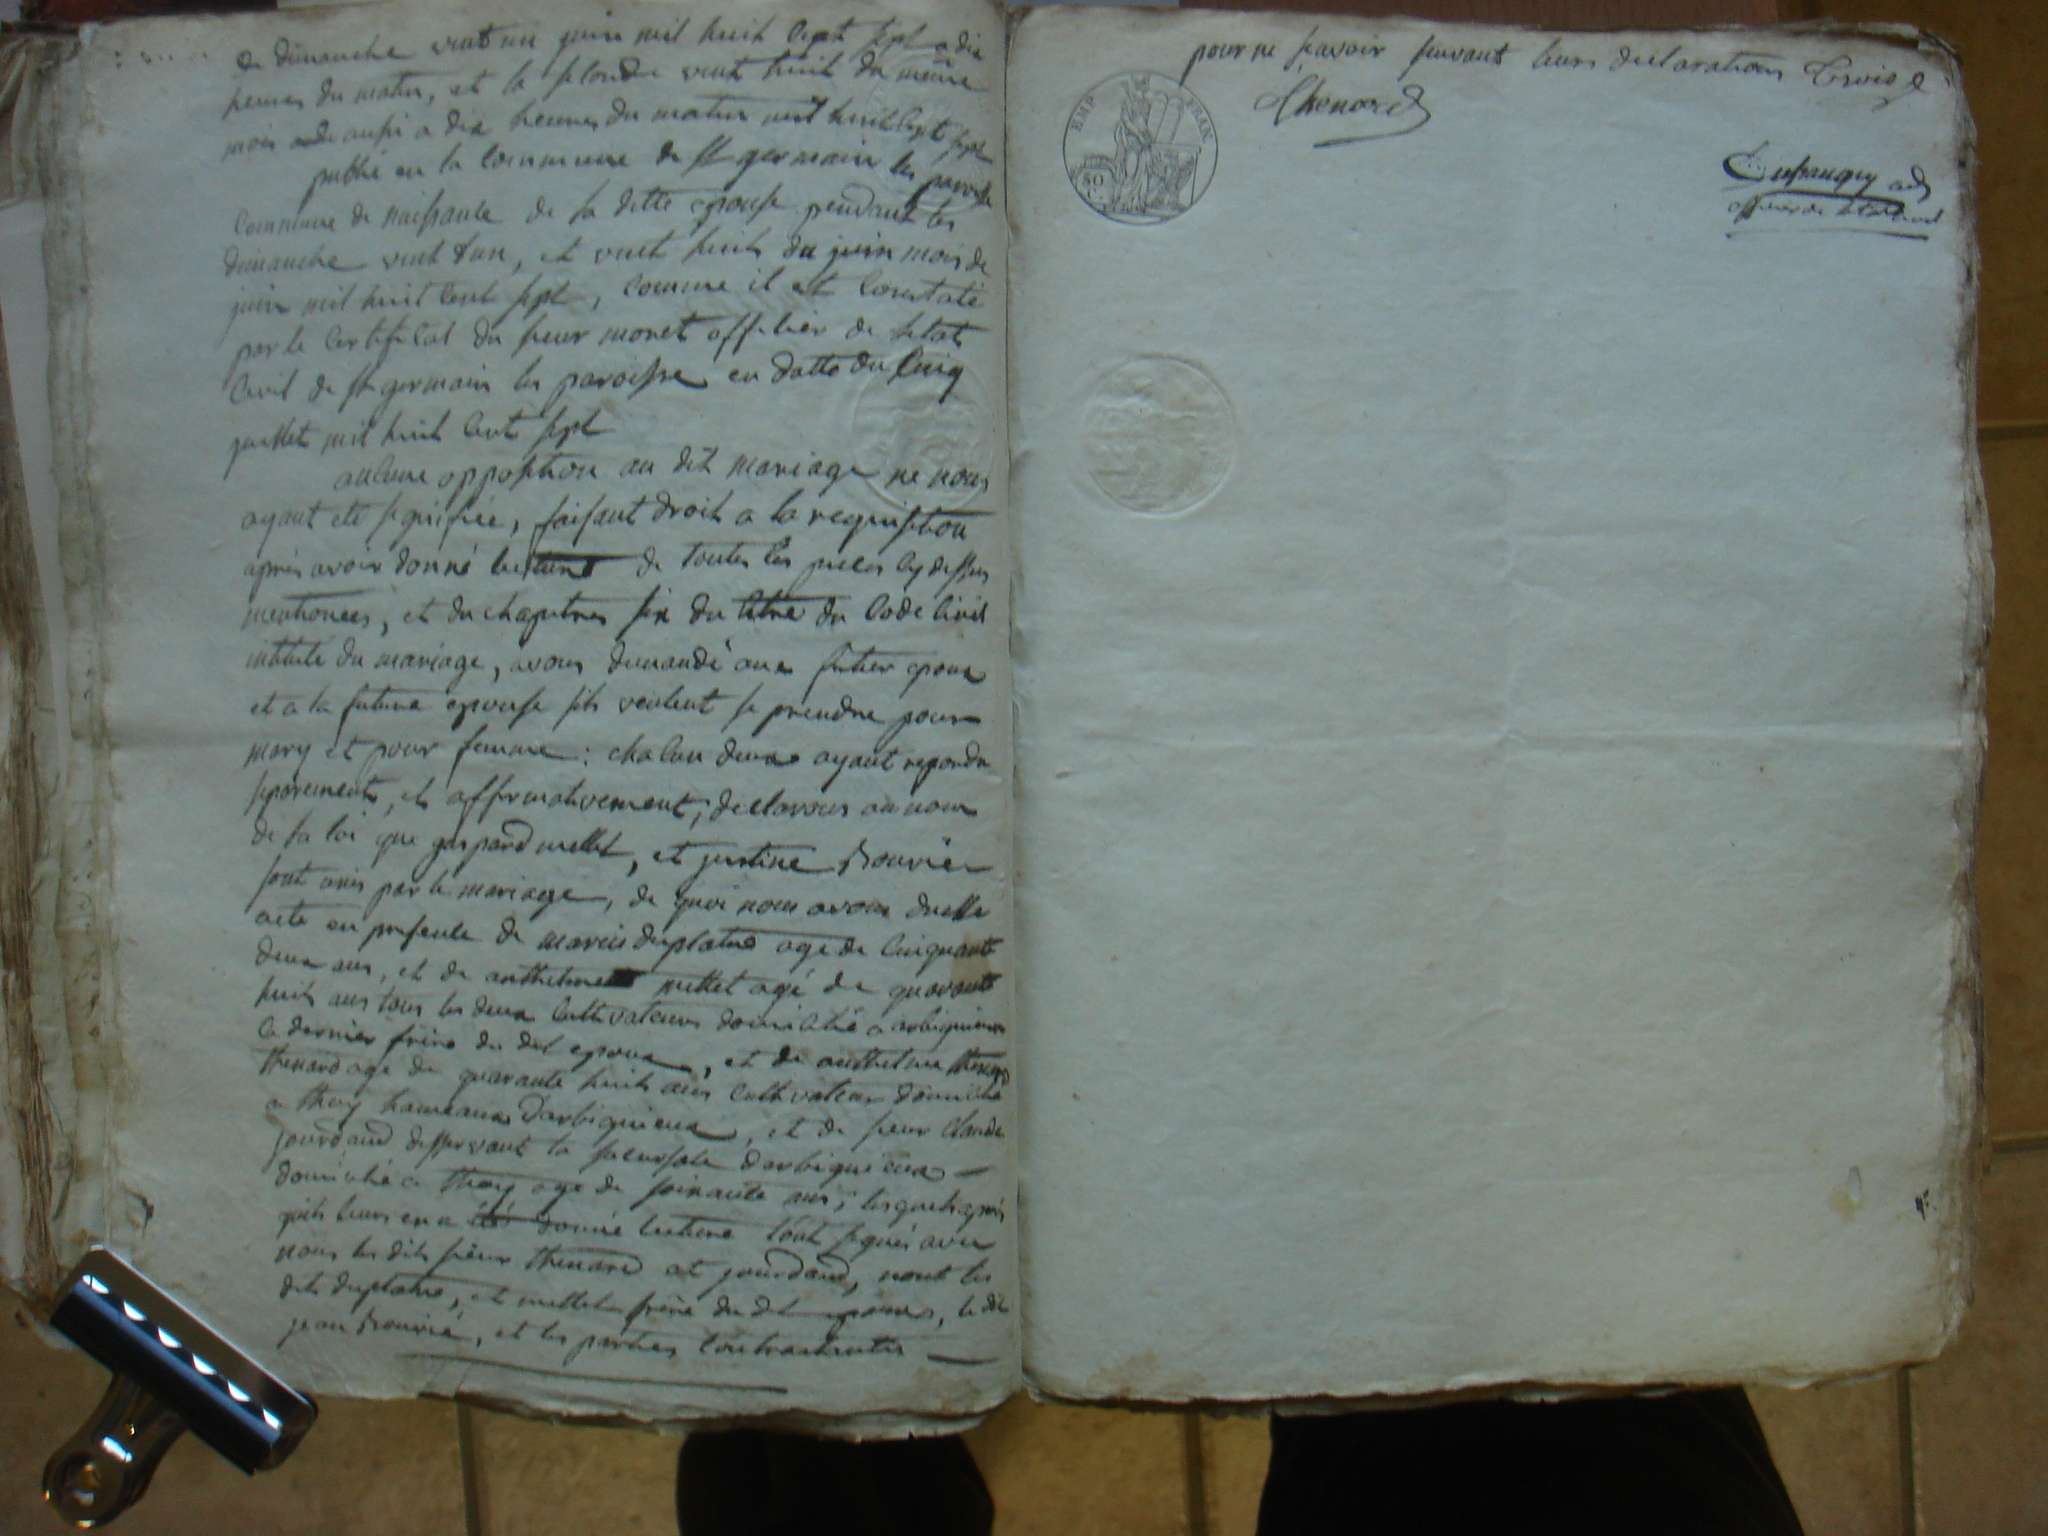 de dimanche vint un juin mil huit cent sept a dix
heures du matin, et la seconde vint huit du meme
mois aussi a dix heures du matin mil huit cent sept
publié en la commune de st germain les paroisse
commune de naissance de la ditte epouse pendant les
dimanche vint d'un, et vint huit du juin mois de
juin mil huit cent sept, comme il est constaté
par le certificat du sieur monet officier de letat
civil de st germain les paroisse en datte du cinq
juillet mil huit cent sept
aucune opposition au dit mariage ne nous
ayant eté signifiée, faisant droit a la requisition
après avoir donné lecture de toutes les pieces cy dessus
mentionees, et du chapitres six du titre du code civil
intitulé du mariage, avons demandé aux futur epoux
et a la future epouse sils veulent se prendre pour
mary et pour femme : chacun deux ayant repondu
séparement, et affirmativement, declarons au nom
de la loi que gaspard mellet, et justine Bouvier
sont unis par le mariage, de quoi nous avons dressé
acte en presence de marcis duplatre age de cinquante
deux ans, et de anthelme mellet agé de quarante
huit ans tous les deux cultivateurs domicilié a arbignieux
le dernier frère du dit epoux, et de anthelme
thenard age de quarante huit ans cultivateur domicilié
a thoy hameaux d'arbignieux, et de sieur Claude
jourdand desservant la succursale darbignieux
domicilié a thoy age de soixante ans; lesquels après
quils leurs en a été donné lecture lont signés avec
nous les dits sieur thenard et jourdand, nont les
dits duplatre, et mellet frère du dit epoux, le dit
jean Bouvié, et les parties contractantes
pour ne scavoir suivant leurs declarations
EMP. FRAN.
50 C.
thenard
officier de letat civil